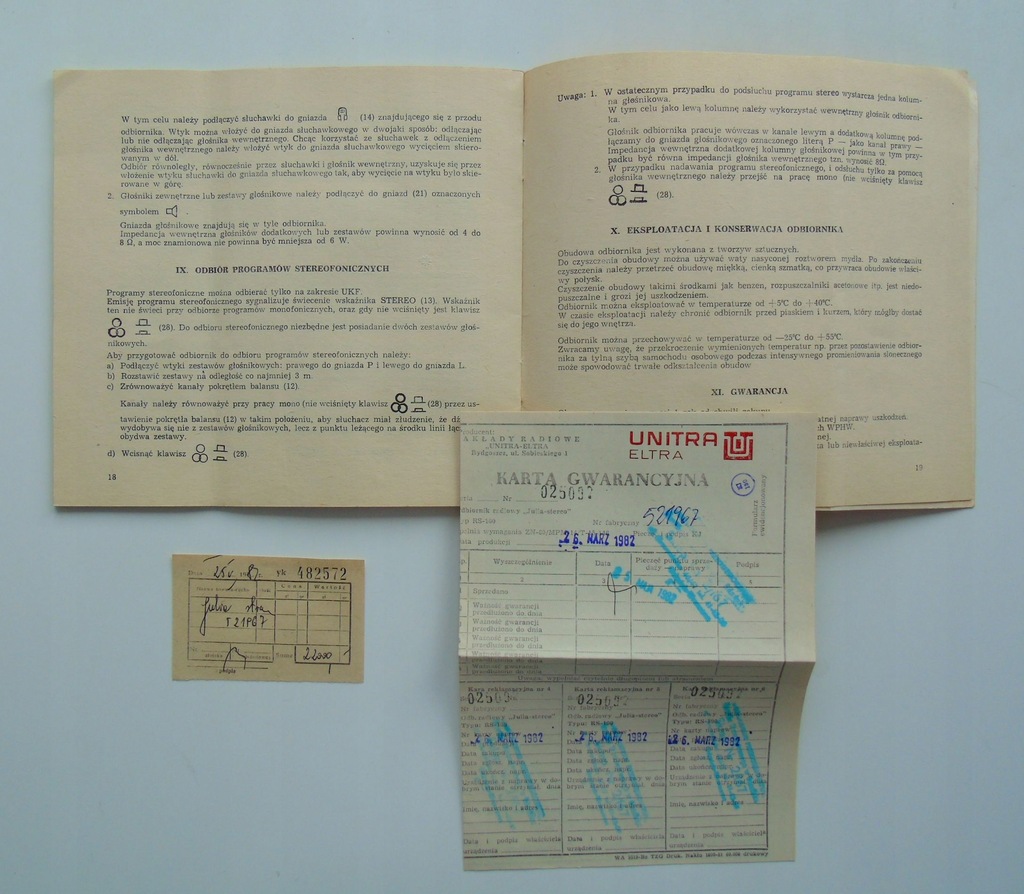 W tym celu należy podłączyć słuchawki do gniazda (14) znajdującego się z przodu
odbiornika. Wtyk można włożyć do gniazda słuchawkowego w dwojaki sposób: odłączając
lub nie odłączając głośnika wewnętrznego. Chcąc korzystać ze słuchawek z odłączeniem
głośnika wewnętrznego należy włożyć wtyk do gniazda słuchawkowego wycięciem skiero-
wanym w dół.
Odbiór równoległy, równocześnie przez słuchawki i głośnik wewnętrzny, uzyskuje się przez
włożenie wtyku słuchawki do gniazda słuchawkowego tak, aby wycięcie na wtyku było skie-
rowane w górę.
2. Głośniki zewnętrzne lub zestawy głośnikowe należy podłączyć do gniazd (21) oznaczonych
symbolem .
Gniazda głośnikowe znajdują się w tyle odbiornika.
Impedancja wewnętrzna głośników dodatkowych lub zestawów powinna wynosić od 4 do
8 Ω, a moc znamionowa nie powinna być mniejsza od 6 W.
IX. ODBIÓR PROGRAMÓW STEREOFONICZNYCH
Programy stereofoniczne można odbierać tylko na zakresie UKF.
Emisję programu stereofonicznego sygnalizuje świecenie wskaźnika STEREO (13). Wskaźnik
ten nie świeci przy odbiorze programów monofonicznych, oraz gdy nie wciśnięty jest klawisz
(28). Do odbioru stereofonicznego niezbędne jest posiadanie dwóch zestawów głoś-
nikowych.
Aby przygotować odbiornik do odbioru programów stereofonicznych należy:
a) Podłączyć wtyki zestawów głośnikowych: prawego do gniazda P i lewego do gniazda L.
b) Rozstawić zestawy na odległość co najmniej 3 m.
c) Zrównoważyć kanały pokrętłem balansu (12).
Kanały należy równoważyć przy pracy mono (nie wciśnięty klawisz (28) przez us-
tawienie pokrętła balansu (12) w takim położeniu, aby słuchacz miał złudzenie, że dź
wydobywa się nie z zestawów głośnikowych, lecz z punktu leżącego na środku linii łąc
obydwa zestawy.
d) Wcisnąć klawisz (28).
18
Uwaga: 1. W ostatecznym przypadku do podsłuchu programu stereo wystarcza jedna kolum-
na głośnikowa.
W tym celu jako lewą kolumnę należy wykorzystać wewnętrzny głośnik odbiorni-
ka.
Głośnik odbiornika pracuje wówczas w kanale lewym a dodatkową kolumnę pod-
łączamy do gniazda głośnikowego oznaczonego literą P — jako kanał prawy —
Impedancja wewnętrzna dodatkowej kolumny głośnikowej powinna w tym przy-
padku być równa impedancji głośnika wewnętrznego tzn. wynosić 8Ω.
2. W przypadku nadawania programu stereofonicznego, i odsłuchu tylko za pomocą
głośnika wewnętrznego należy przejść na pracę mono (nie wciśnięty klawisz
(28).
X. EKSPLOATACJA I KONSERWACJA ODBIORNIKA
Obudowa odbiornika jest wykonana z tworzyw sztucznych.
Do czyszczenia obudowy można używać waty nasyconej roztworem mydła. Po zakończeniu
czyszczenia należy przetrzeć obudowę miękką, cienką szmatką, co przywraca obudowie właści-
wy połysk.
Czyszczenie obudowy takimi środkami jak benzen, rozpuszczalniki acetonowe itp. jest niedo-
puszczalne i grozi jej uszkodzeniem.
Odbiornik można eksploatować w temperaturze od +5°C do +40°C.
W czasie eksploatacji należy chronić odbiornik przed piaskiem i kurzem, który mógłby dostać
się do jego wnętrza.
Odbiornik można przechowywać w temperaturze od —25°C do +55°C.
Zwracamy uwagę, że przekroczenie wymienionych temperatur np. przez pozostawienie odbior-
nika za tylną szybą samochodu osobowego podczas intensywnego promieniowania słonecznego
może spowodować trwałe odkształcenia obudowy
XI. GWARANCJA
atnej naprawy uszkodzeń.
h WPHW.
lub niewłaściwej eksploata-
19
roducent:
AKŁADY RADIOWE
„UNITRA-ELTRA
Bydgoszcz, ul.
UNITRA
ELTRA
KARTA GWARANCYJNA
Nr 025092
dbiornik radiowy „Julia-stereo"
Nr fabryczny 521967
26. MARZ 1982
Wyszczególnienie Data Pieczęć punktu sprze- Podpis
Sprzedano
1982
Ważność gwarancji
przedłużono do dnia
Ważność gwarancji
przedłużono do dnia
Ważność gwarancji
przedłużono do dnia
Ważność gwarancji
Nr fabryczny
Odb. radiowy „Julia-stereo"
26. MARZ 1982
Imię, nazwisko i adres
Data i podpis właściciela
urządzenia
Nr fabryczny
Odb. radiowy „Julia-stereo"
26. MARZ 1982
Imię, nazwisko i adres
Data i podpis właściciela
urządzenia
Nr fabryczny
Odb. radiowy „Julia-stereo"
26. MARZ 1982
Imię, nazwisko i adres
Data i podpis właściciela
urządzenia
482572
Cena Wartość
22000
podpis